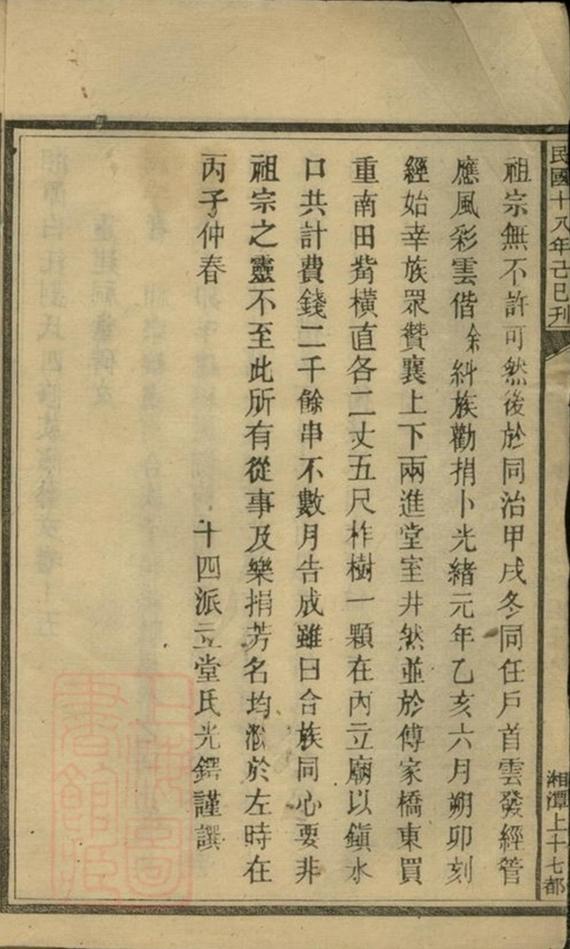 民國十八年己巳刊
湘潭上十七都
祖宗無不許可然後於同治甲戌冬同任戶首雲發經管
應風彩雲偕余糾族勸捐卜光緒元年乙亥六月朔卯刻
經始幸族眾贊襄上下兩進堂室井然並於傅家橋東買
重南田嵜橫直各二丈五尺柞樹一顆在內立廟以鎮水
口共計費錢二千餘串不數月告成雖曰合族同心要非
祖宗之靈不至此所有從事及樂捐芳名均泐於左時在
丙子仲春 十四派立堂氏光鍔謹譔